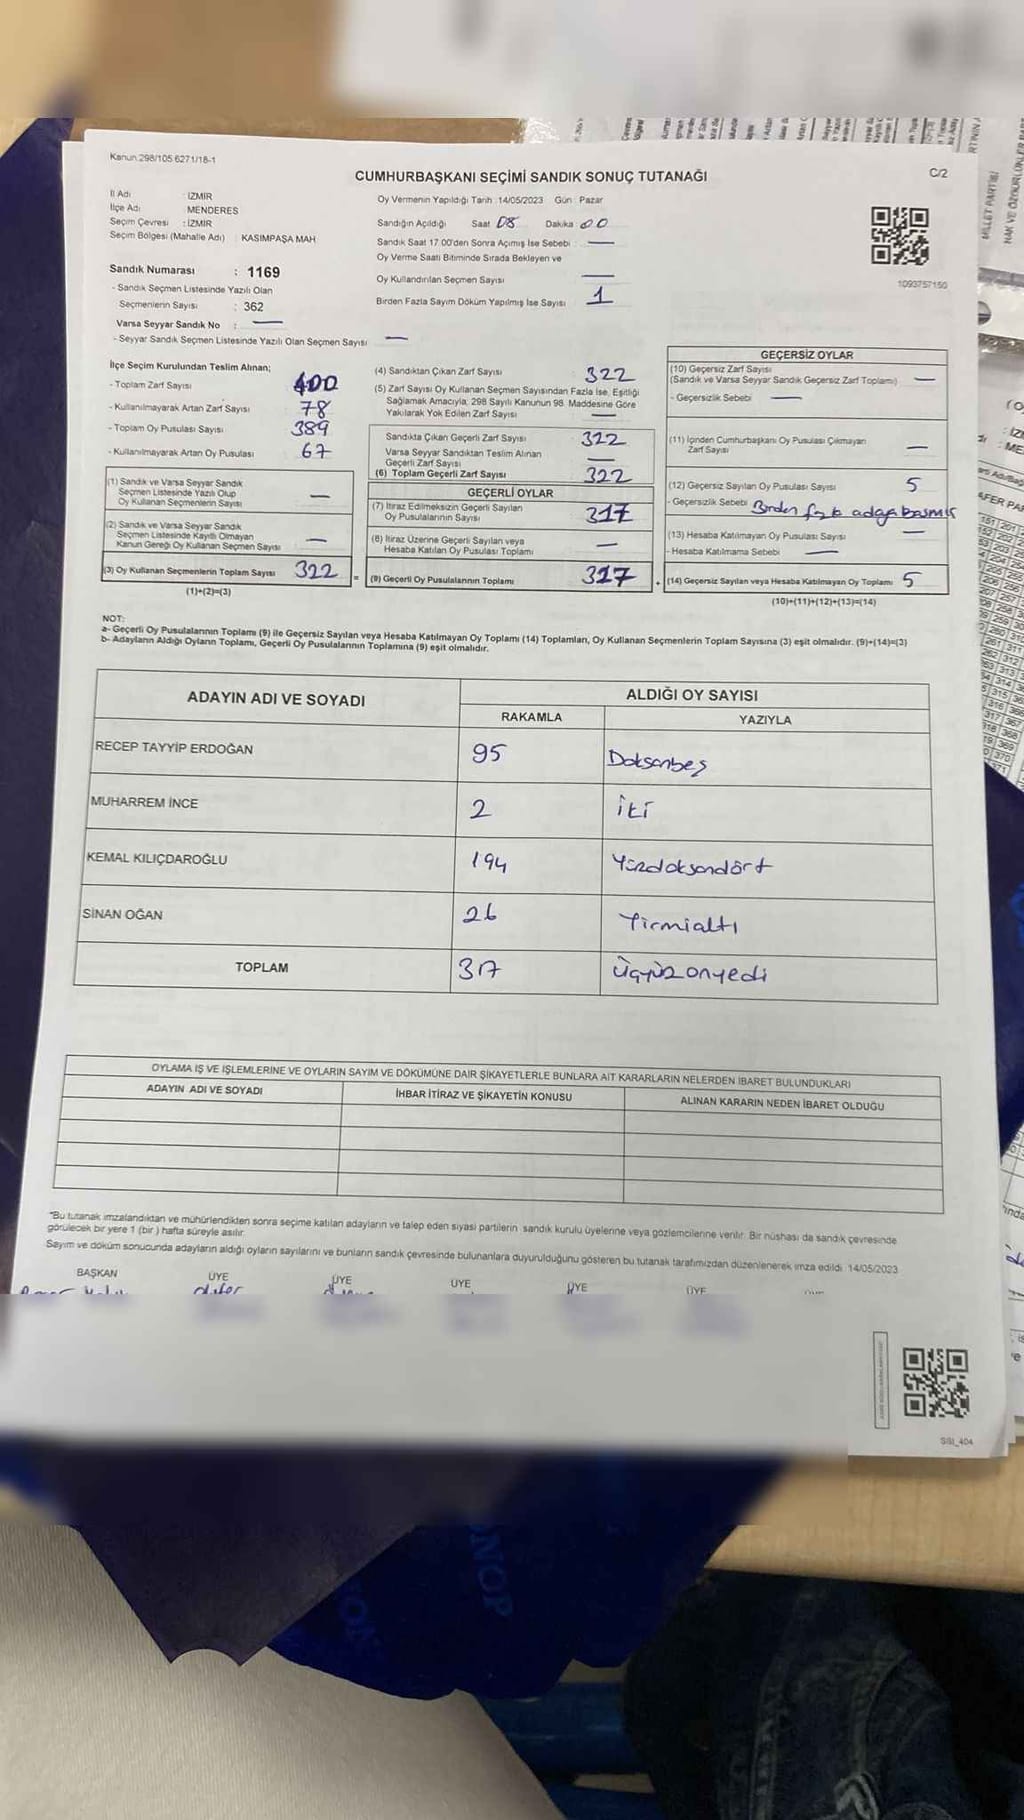 Kanun 298/105 6271/18-1
C/2
CUMHURBAŞKANI SEÇİMİ SANDIK SONUÇ TUTANAĞI
İl Adı : İZMİR
İlçe Adı : MENDERES
Seçim Çevresi : İZMİR
Seçim Bölgesi (Mahalle Adı) KASIMPAŞA MAH
Sandık Numarası : 1169
- Sandık Seçmen Listesinde Yazılı Olan
Seçmenlerin Sayısı : 362
Varsa Seyyar Sandık No : —
- Seyyar Sandık Seçmen Listesinde Yazılı Olan Seçmen Sayısı —
Oy Vermenin Yapıldığı Tarih :14/05/2023 Gün : Pazar
Sandığın Açıldığı Saat 08 Dakika 00
Sandık Saat 17.00'den Sonra Açımış İse Sebebi : —
Oy Verme Saati Bitiminde Sırada Bekleyen ve
Oy Kullandırılan Seçmen Sayısı —
Birden Fazla Sayım Döküm Yapılmış İse Sayısı 1
1093757150
İlçe Seçim Kurulundan Teslim Alınan;
- Toplam Zarf Sayısı 400
- Kullanılmayarak Artan Zarf Sayısı 78
- Toplam Oy Pusulası Sayısı 389
- Kullanılmayarak Artan Oy Pusulası 67
(1) Sandık ve Varsa Seyyar Sandık
Seçmen Listesinde Yazılı Olup
Oy Kullanan Seçmenlerin Sayısı —
(2) Sandık ve Varsa Seyyar Sandık
Seçmen Listesinde Kayıtlı Olmayan
Kanun Gereği Oy Kullanan Seçmen Sayısı —
(3) Oy Kullanan Seçmenlerin Toplam Sayısı 322 =
(1)+(2)=(3)
(4) Sandıktan Çıkan Zarf Sayısı 322
(5) Zarf Sayısı Oy Kullanan Seçmen Sayısından Fazla İse, Eşitliği
Sağlamak Amacıyla, 298 Sayılı Kanunun 98. Maddesine Göre
Yakılarak Yok Edilen Zarf Sayısı —
Sandıkta Çıkan Geçerli Zarf Sayısı 322
Varsa Seyyar Sandıktan Teslim Alınan
Geçerli Zarf Sayısı —
(6) Toplam Geçerli Zarf Sayısı 322
GEÇERLİ OYLAR
(7) İtiraz Edilmeksizin Geçerli Sayılan
Oy Pusulalarının Sayısı 317
(8) İtiraz Üzerine Geçerli Sayılan veya
Hesaba Katılan Oy Pusulası Toplamı —
(9) Geçerli Oy Pusulalarının Toplamı 317 +
GEÇERSİZ OYLAR
(10) Geçersiz Zarf Sayısı
(Sandık ve Varsa Seyyar Sandık Geçersiz Zarf Toplamı) —
- Geçersizlik Sebebi —
(11) İçinden Cumhurbaşkanı Oy Pusulası Çıkmayan
Zarf Sayısı —
(12) Geçersiz Sayılan Oy Pusulası Sayısı 5
- Geçersizlik Sebebi Birden fazla adaya basmış
(13) Hesaba Katılmayan Oy Pusulası Sayısı —
- Hesaba Katılmama Sebebi —
(14) Geçersiz Sayılan veya Hesaba Katılmayan Oy Toplamı 5
(10)+(11)+(12)+(13)=(14)
NOT:
a- Geçerli Oy Pusulalarının Toplamı (9) ile Geçersiz Sayılan veya Hesaba Katılmayan Oy Toplamı (14) Toplamları, Oy Kullanan Seçmenlerin Toplam Sayısına (3) eşit olmalıdır. (9)+(14)=(3)
b- Adayların Aldığı Oyların Toplamı, Geçerli Oy Pusulalarının Toplamına (9) eşit olmalıdır.
ADAYIN ADI VE SOYADI ALDIĞI OY SAYISI
RAKAMLA YAZIYLA
RECEP TAYYİP ERDOĞAN 95 Doksanbeş
MUHARREM İNCE 2 iki
KEMAL KILIÇDAROĞLU 194 Yüzdoksandört
SİNAN OĞAN 26 Yirmialtı
TOPLAM 317 Üçyüzonyedi
OYLAMA İŞ VE İŞLEMLERİNE VE OYLARIN SAYIM VE DÖKÜMÜNE DAİR ŞİKAYETLERLE BUNLARA AİT KARARLARIN NELERDEN İBARET BULUNDUKLARI
ADAYIN ADI VE SOYADI İHBAR İTİRAZ VE ŞİKAYETİN KONUSU ALINAN KARARIN NEDEN İBARET OLDUĞU
*Bu tutanak imzalandıktan ve mühürlendikten sonra seçime katılan adayların ve talep eden siyasi partilerin sandık kurulu üyelerine veya gözlemcilerine verilir. Bir nüshası da sandık çevresinde
görülecek bir yere 1 (bir ) hafta süreyle asılır.
Sayım ve döküm sonucunda adayların aldığı oyların sayılarını ve bunların sandık çevresinde bulunanlara duyurulduğunu gösteren bu tutanak tarafımızdan düzenlenerek imza edildi. 14/05/2023
BAŞKAN ÜYE ÜYE ÜYE ÜYE ÜYE
SBI_404